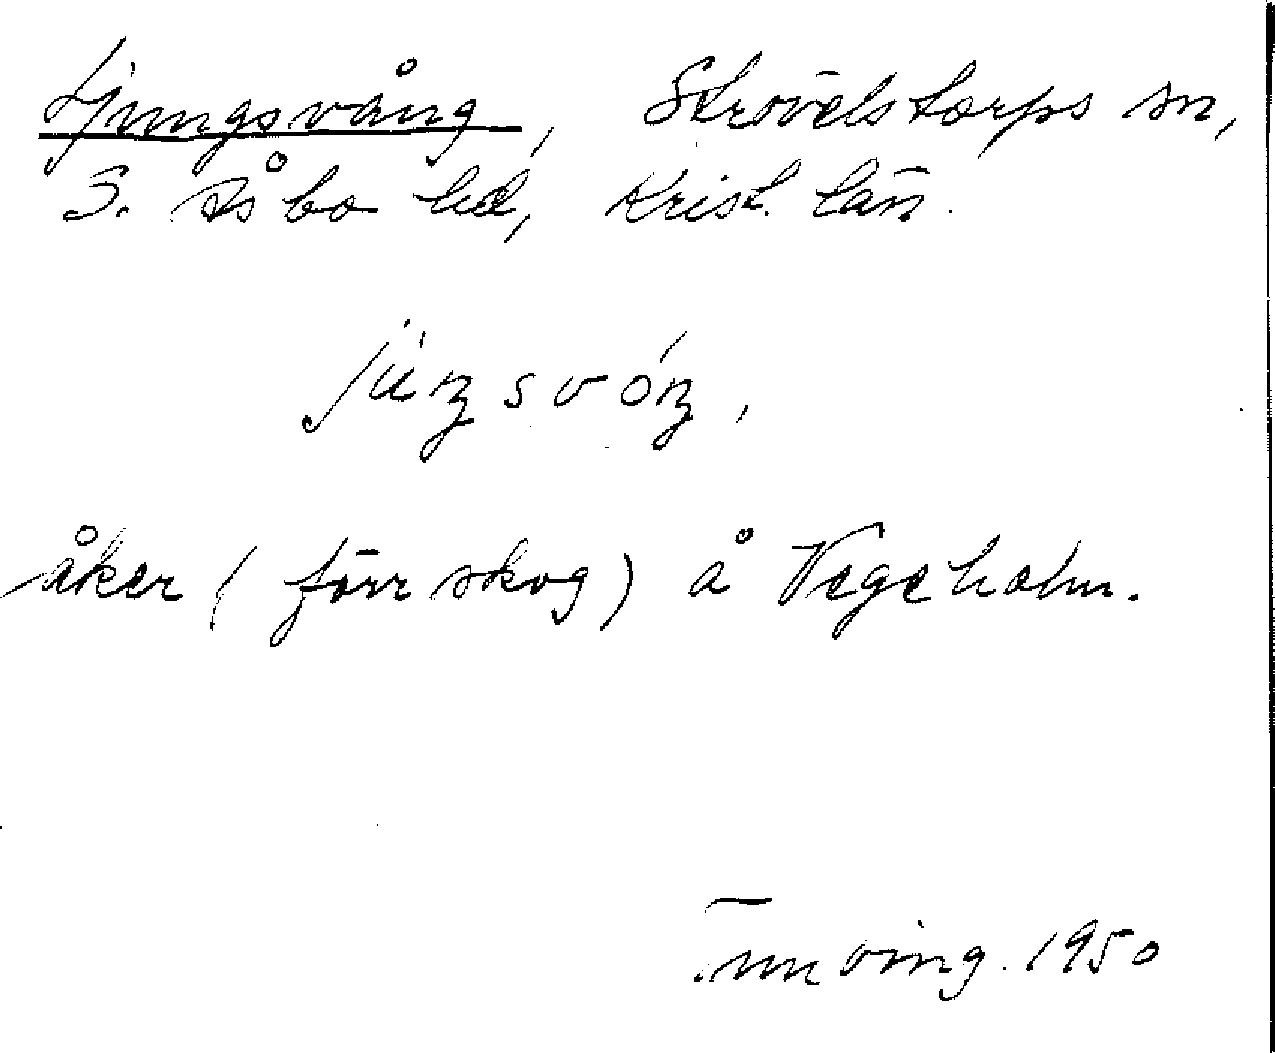 Ljungsvång, Strövelstorps sn,
S. Åsbo hd, Krist. län.
júŋsvóŋ,
åker (förr skog) å Vegeholm.
1950